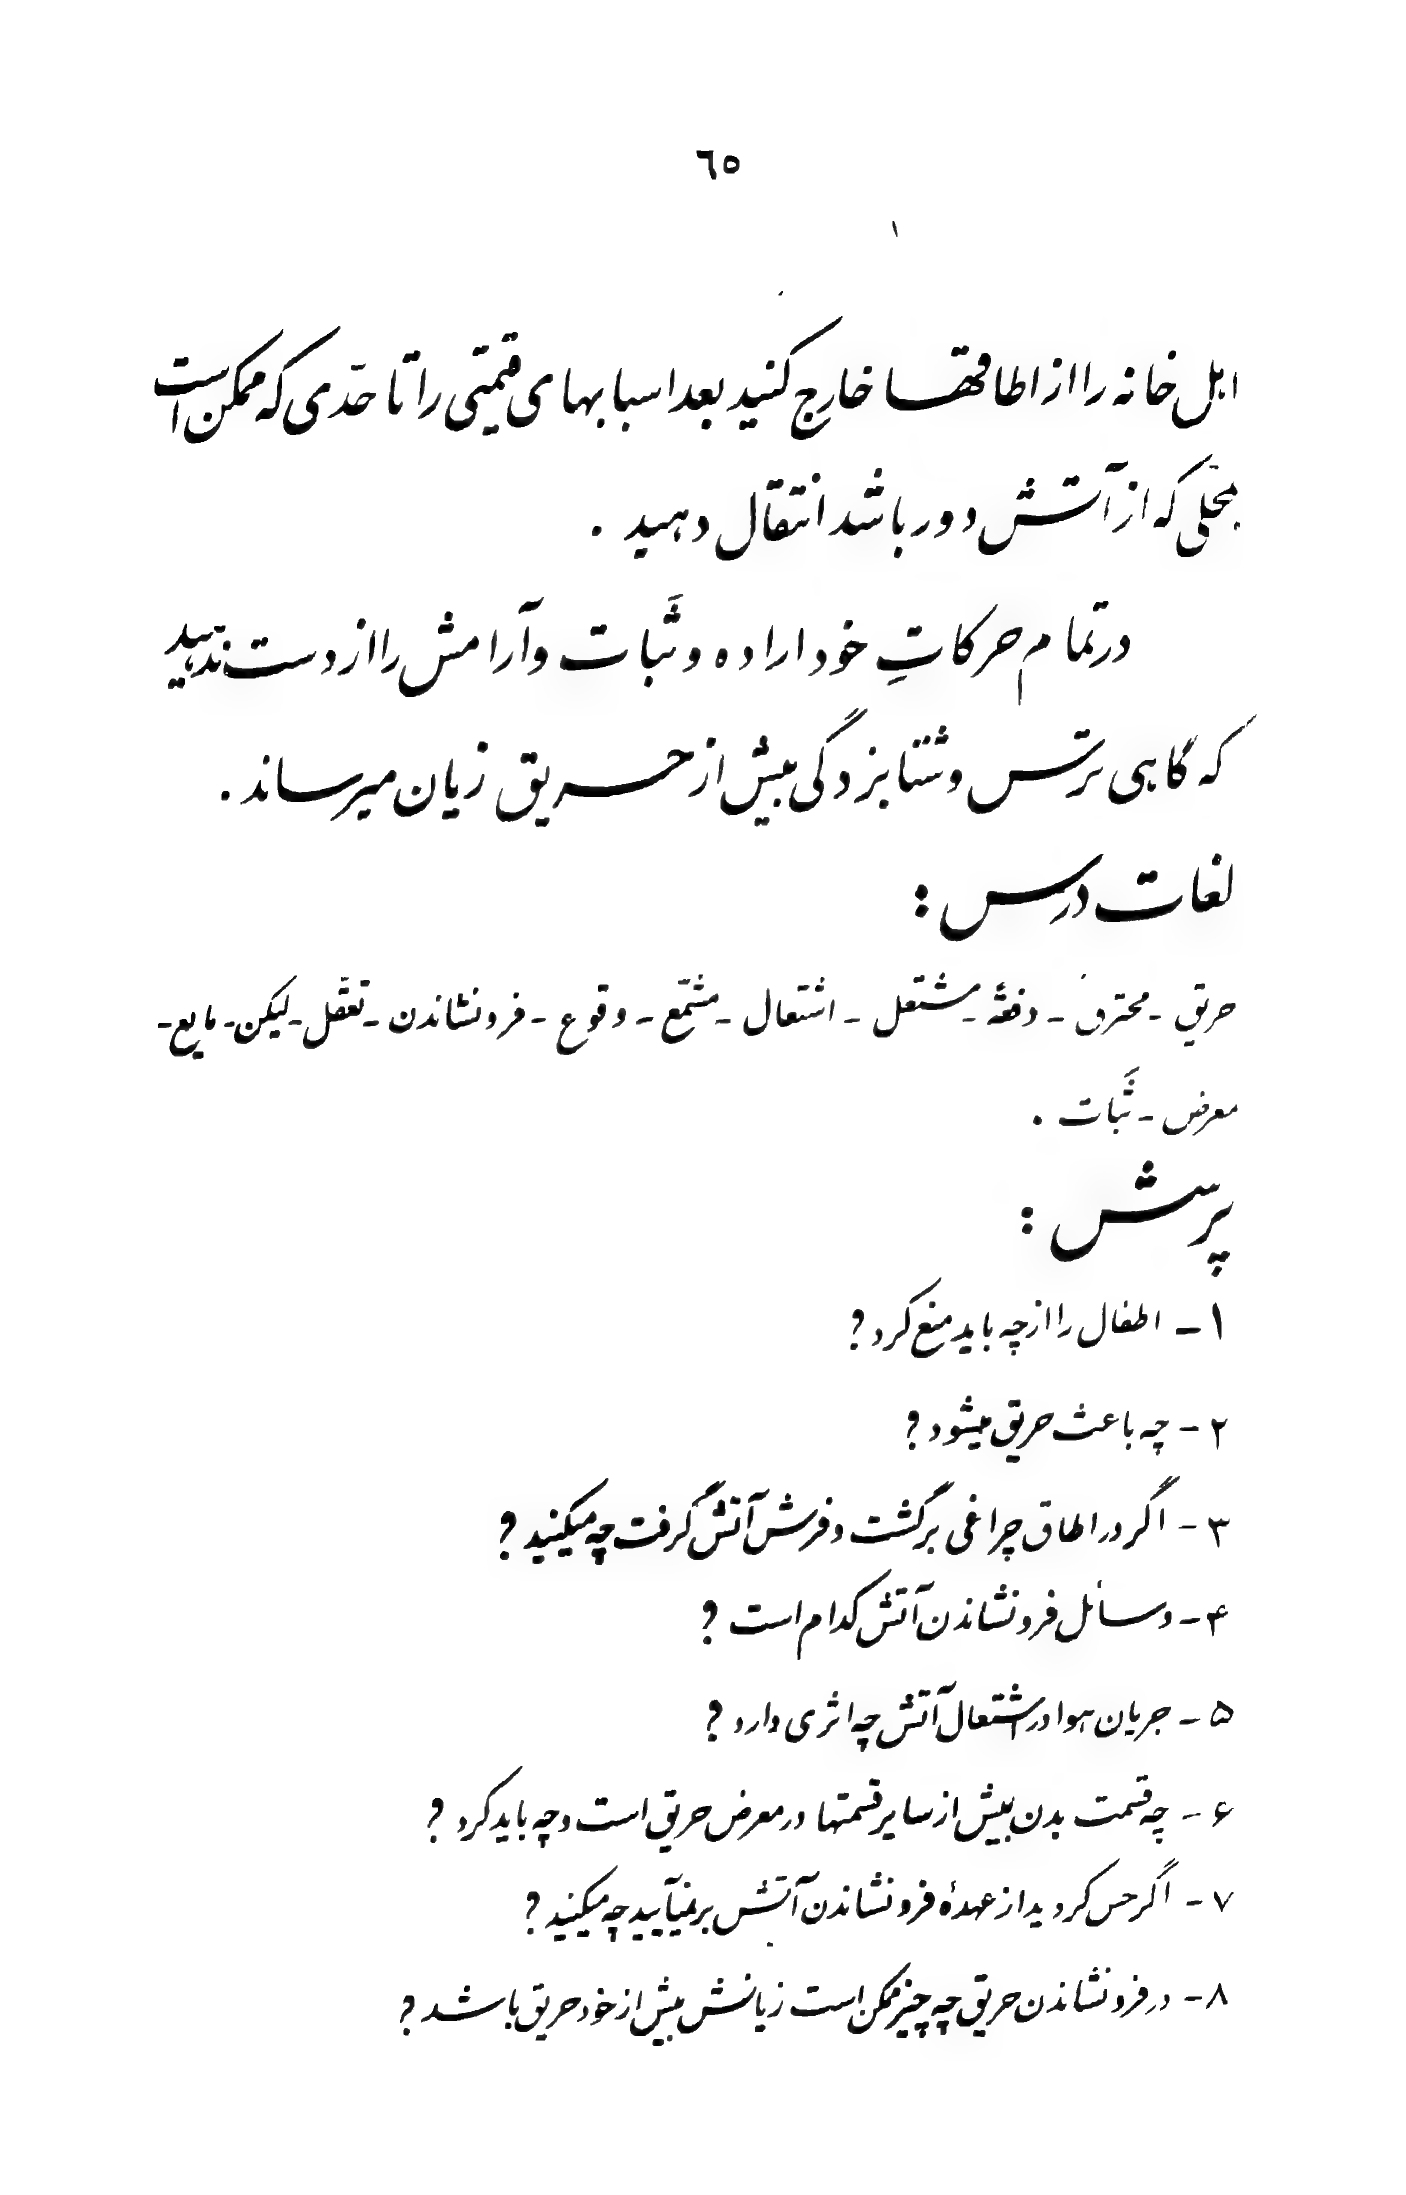 ٦٥
اهل خانه را از اطاقها خارج کنید بعد اسبابهای قیمتی را تا حدّی که ممکن است
بمحلّی که از آتش دور باشد انتقال دهید .
در تمام حرکاتِ خود اراده و ثَبات و آرامش را از دست ندهید
که گاهی ترس و شتابزدگی بیش از حریق زیان میرساند .
لغات درس :
حریق - محترق - دفعةً - مشتعل - اشتعال - مشمّع - وقوع - فرونشاندن - تعقّل - لیکن - مایع -
معرض - ثَبات .
پرسش :
۱ - اطفال را از چه باید منع کرد ?
۲ - چه باعث حریق میشود ?
۳ - اگر در اطاق چراغی برگشت و فرش آتش گرفت چه میکنید ?
۴ - وسائل فرونشاندن آتش کدام است ?
۵ - جریان هوا در اشتعال آتش چه اثری دارد ?
۶ - چه قسمت بدن بیش از سایر قسمتها در معرض حریق است و چه باید کرد ?
۷ - اگر حس کردید از عهدهٔ فرونشاندن آتش برنمیآیید چه میکنید ?
۸ - در فرونشاندن حریق چه چیز ممکن است زیانش بیش از خود حریق باشد ?